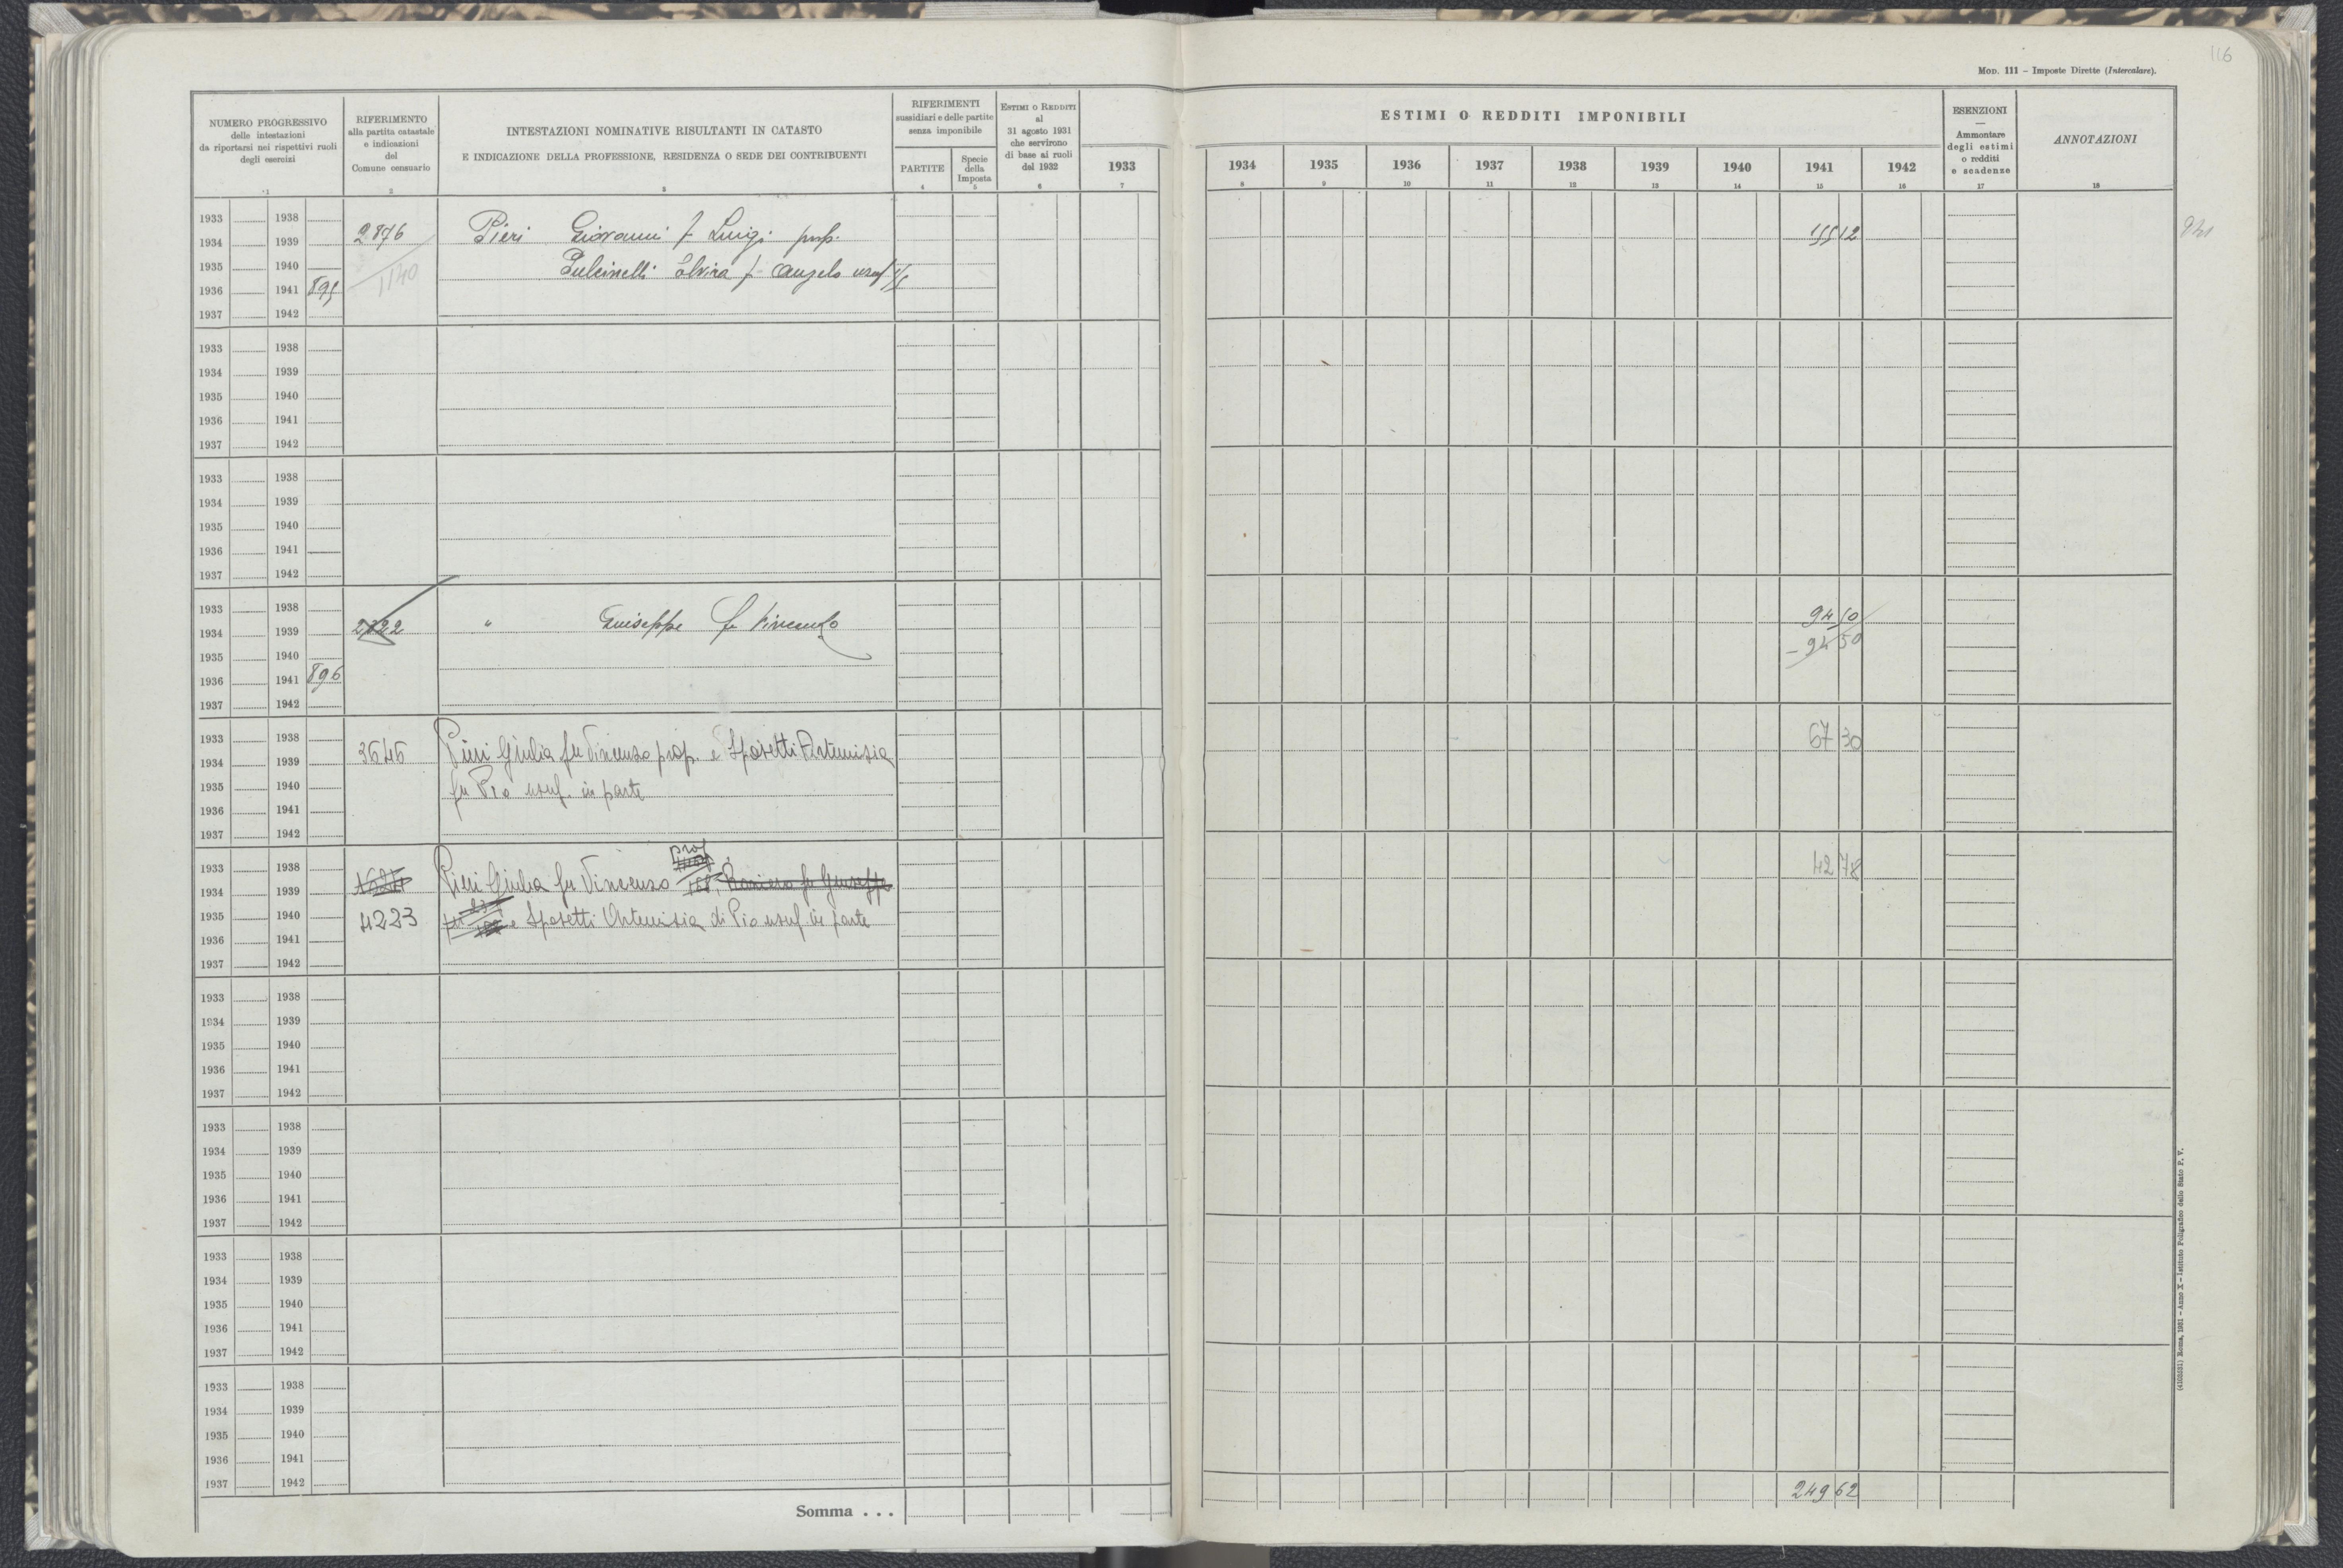 116
MOD. 111 – Imposte Dirette (Intercalare).
NUMERO PROGRESSIVO
delle intestazioni
da riportarsi nei rispettivi ruoli
degli esercizi
1
RIFERIMENTO
alla partita catastale
e indicazioni
del
Comune censuario
2
INTESTAZIONI NOMINATIVE RISULTANTI IN CATASTO
E INDICAZIONE DELLA PROFESSIONE, RESIDENZA O SEDE DEI CONTRIBUENTI
3
RIFERIMENTI
sussidiari e delle partite
senza imponibile
PARTITE
4
Specie
della
Imposta
5
ESTIMI O REDDITI
al
31 agosto 1931
che servirono
di base ai ruoli
del 1932
6
ESTIMI O REDDITI IMPONIBILI
1933 1934 1935 1936 1937 1938 1939 1940 1941 1942
7 8 9 10 11 12 13 14 15 16
ESENZIONI
—
Ammontare
degli estimi
o redditi
e scadenze
17
ANNOTAZIONI
18
1933 1938
1934 1939 2876 Pieri Giovanni f. Luigi prop. 155 12
1935 1940 1140 Pulcinelli Elvira f. Angelo usuf
1936 1941 895
1937 1942
1933 1938
1934 1939
1935 1940
1936 1941
1937 1942
1933 1938
1934 1939
1935 1940
1936 1941
1937 1942
1933 1938 94 50
1934 1939 " Giuseppe fu Vincenzo
1935 1940 – 94 50
1936 1941 896
1937 1942
1933 1938 67 30
1934 1939 3646 Pieri Giulia fu Vincenzo prop. e Sposetti Artemisia
1935 1940 fu Pio usuf. in parte
1936 1941
1937 1942
prop
1933 1938 42 78
1934 1939 Pieri Giulia fu Vincenzo Raniero fu Giuseppe
1935 1940 4223 e Sposetti Artemisia di Pio usuf. in parte
1936 1941
1937 1942
1933 1938
1934 1939
1935 1940
1936 1941
1937 1942
1933 1938
1934 1939
1935 1940
1936 1941
1937 1942
1933 1938
1934 1939
1935 1940
1936 1941
1937 1942
1933 1938
1934 1939
1935 1940
1936 1941
1937 1942
Somma . . . 249 62
(4103031) Roma, 1931 – Anno X – Istituto Poligrafico dello Stato P. V.